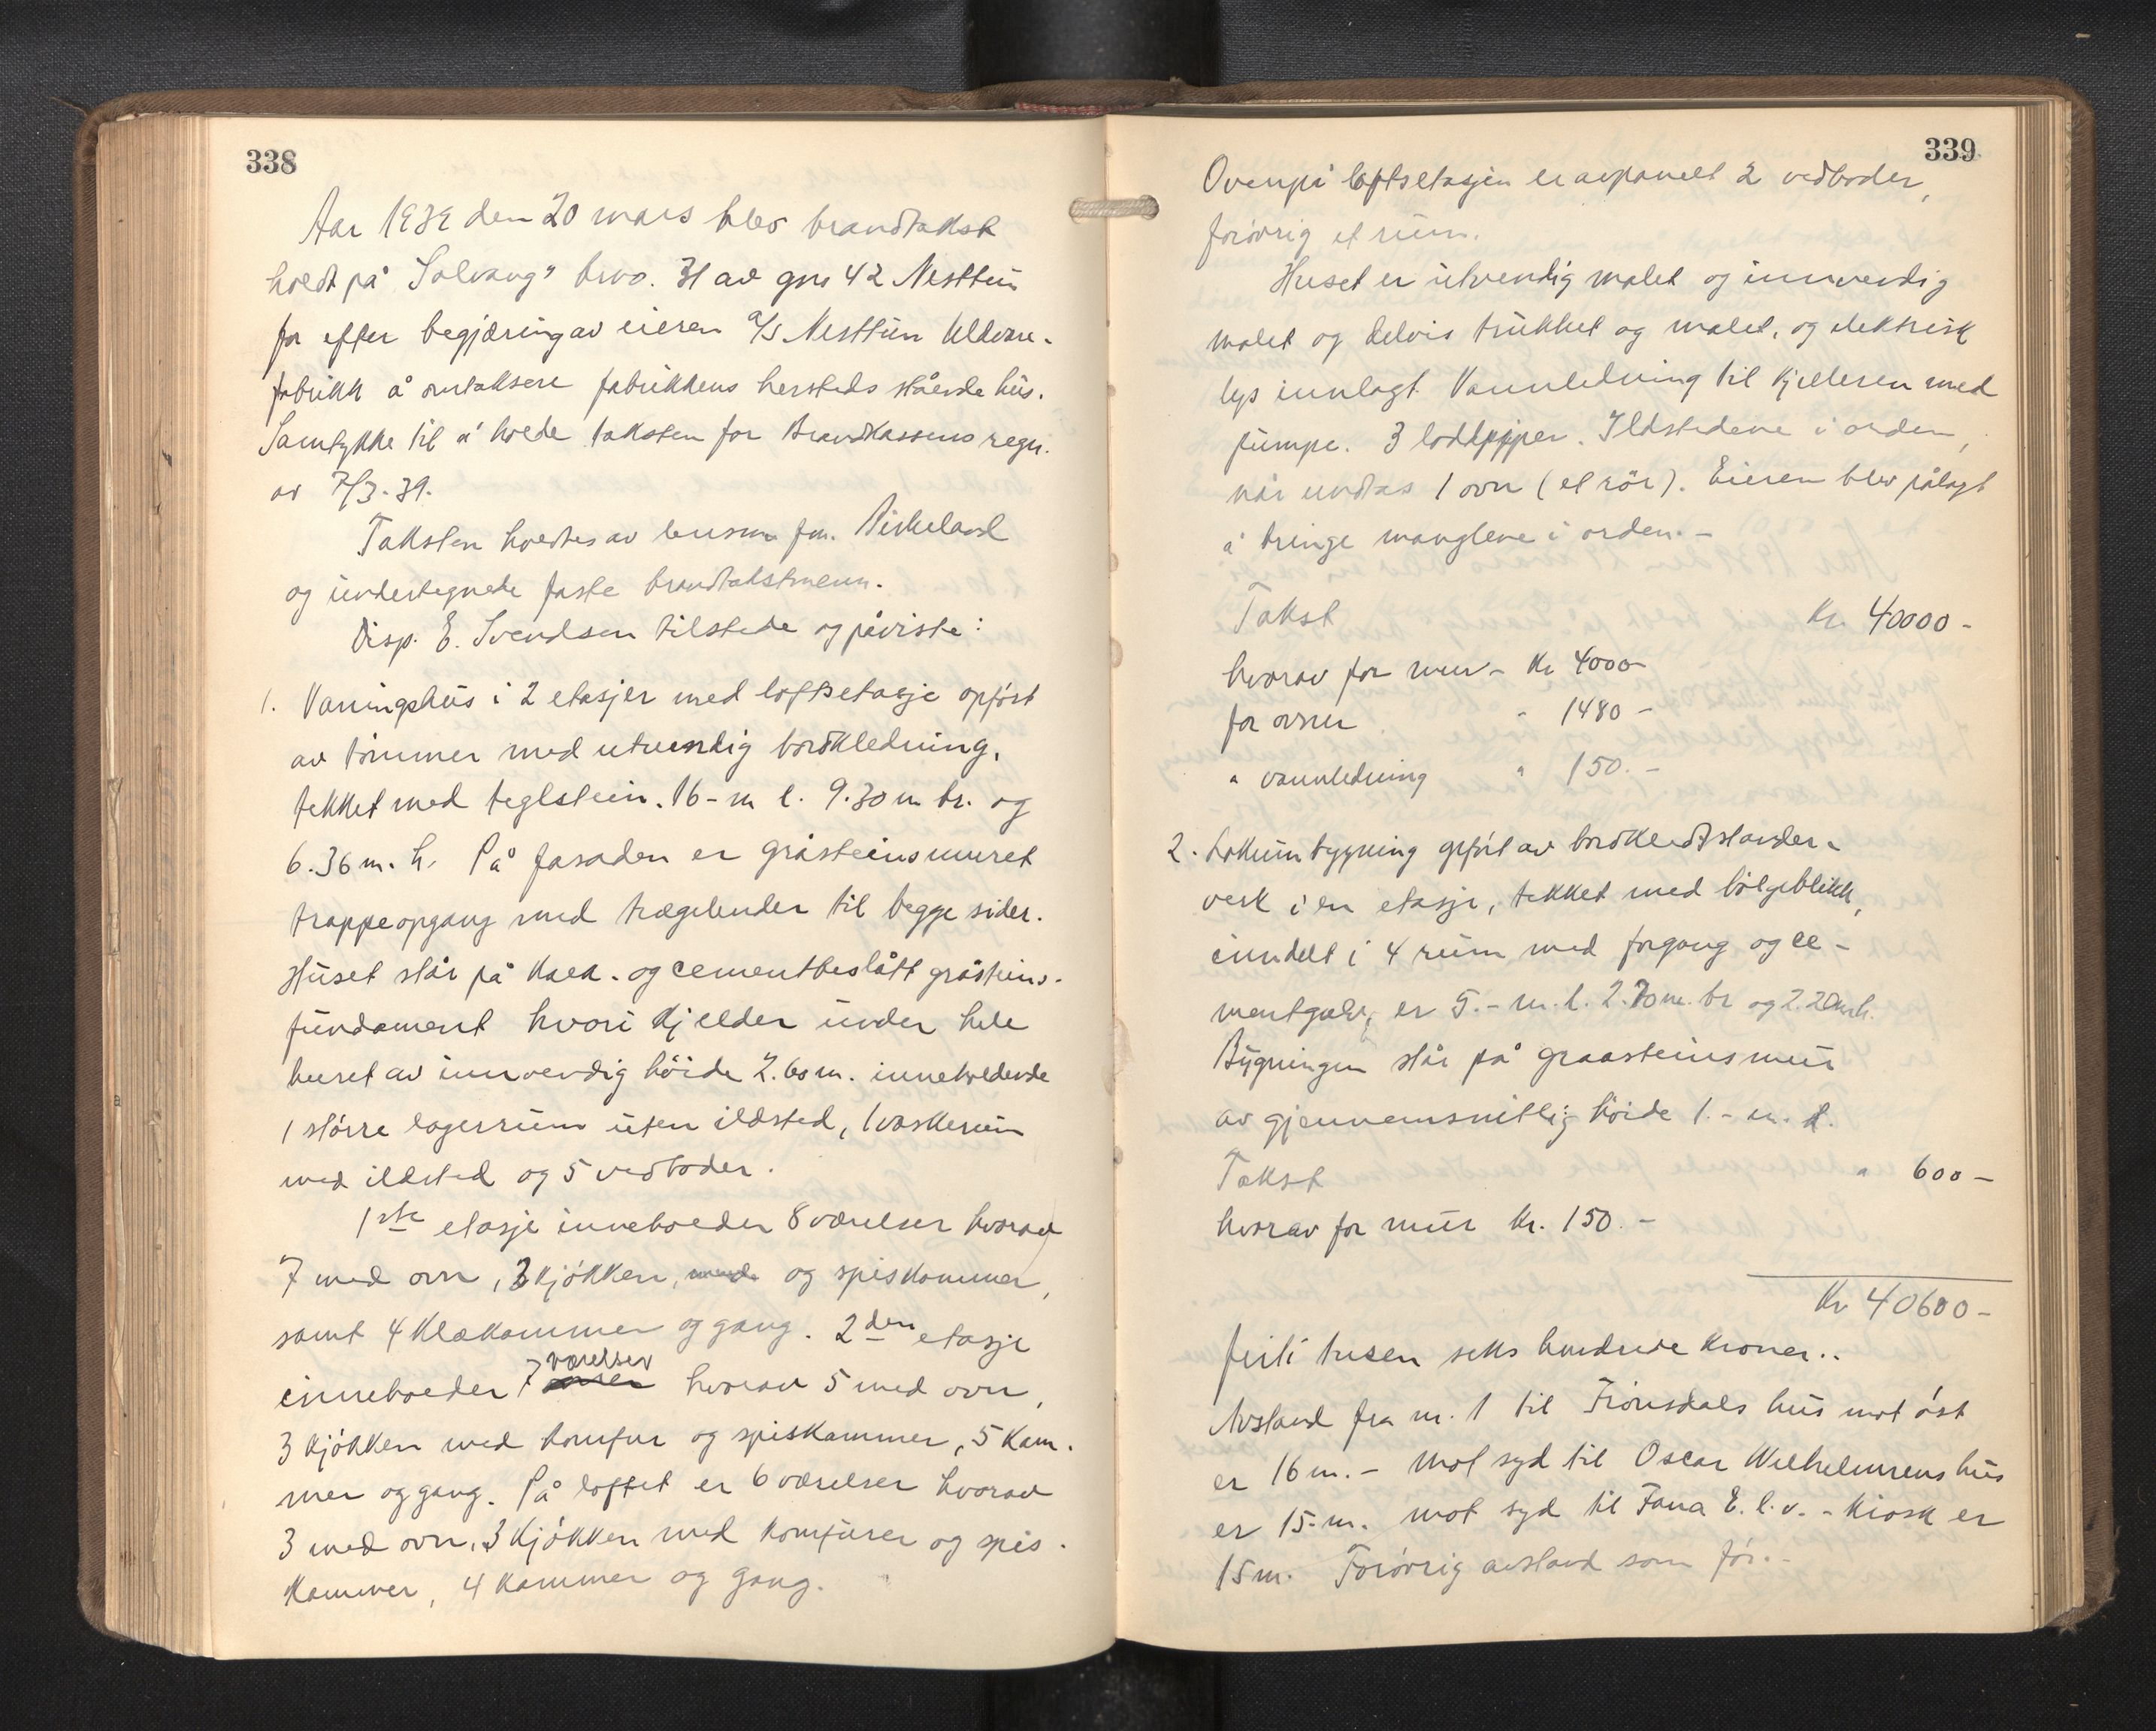 338
Aar 1939 den 20 mars blev brandtakst
holdt på "Solvang" brno. 31 av gno 42 Nesttun
for efter begjæring av eieren a/s Nesttun Uldvare-
fabrikk å omtaksere fabrikkens hersteds stående hus.
Samtykke til å holde taksten for Brandkassens regn.
av 7/3-39.
Taksten holdtes av lensm fm. Birkeland
og undertegnede faste brandtakstmenn.
Disp. E. Svendsen tilstede og påviste:
1. Vaningshus i 2 etasjer med loftsetasje opført
av tømmer med utvendig bordkledning,
tekket med teglstein. 16 - m l. 9.30 m br. og
6.36 m. h. På fasaden er gråsteinsmuret
trappeopgang med trægelender til begge sider.
Huset står på kalk- og cementbeslått gråsteins-
fundament hvori kjelder under hele
huset av innvendig høide 2.60 m. inneholdende
1 større lagerrum uten ildsted, 1 vaskerum
med ildsted og 5 vedboder.
1ste etasje inneholder 8 værelser hvorav
7 med ovn, 3 kjøkken, med og spiskammer,
samt 4 klækammer og gang. 2den etasje
inneholder 7 værelser hvorav 5 med ovn,
3 kjøkken med komfur og spiskammer, 5 kam-
mer og gang. På loftet er 6 værelser hvorav
3 med ovn, 3 kjøkken med komfurer og spis-
kammer, 4 kammer og gang.
339
Ovenpå loftsetasjen er avpanelt 2 vedboder,
forøvrig et rum.
Huset er utvendig malet og innvendig
malet og delvis trukket og malet, og elektrisk
lys innlagt. Vannledning til kjelleren med
pumpe. 3 loddpiper. Ildstedene i orden,
når undtas 1 ovn (et rør). Eieren blev pålagt
å bringe manglene i orden. -
Takst Kr. 40000 -
hvorav for mur - Kr 4000 -
for ovner " 1480 -
" vannledning " 150. -
2. Lokumbygning opført av bordkledt stander-
verk i en etasje, tekket med bølgeblikk,
inndelt i 4 rum med forgang og ce-
mentgulv, er 5. - m. l. 2.70 m. br og 2.20 m h.
Bygningen står på graasteinsmur
av gjennemsnitlig høide 1. - m.
Takst " 600 -
hvorav for mur Kr. 150. -
Kr 40600 -
firti tusen seks hundrede kroner..
Avstand fra nr. 1 til Frønsdals hus mot øst
er 16 m. - mot syd til Oscar Wilhelmsens hus
er 15-m. mot syd til Fana E. l. v. - kiosk er
15 m. Forøvrig avstand som før. -